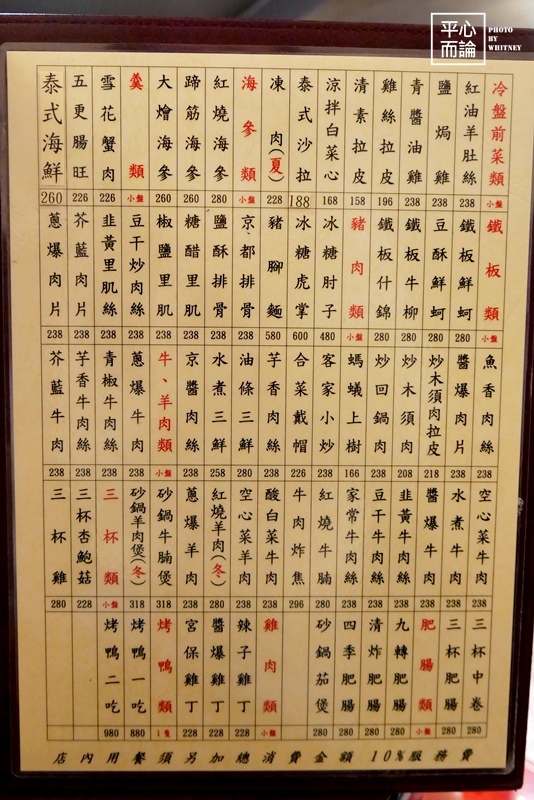 平心而論
PHOTO BY WHITNEY
冷盤前菜類 小盤
紅油羊肚絲 238
鹽焗雞 238
青醬油雞 238
雞絲拉皮 196
清素拉皮 158
涼拌白菜心 168
泰式沙拉 188
凍肉(夏) 228
海參類 小盤
紅燒海參 280
蹄筋海參 260
大燴海參 260
羹類 小盤
雪花蟹肉 226
五更腸旺 226
泰式海鮮 260
鐵板類 小盤
鐵板鮮蚵 280
豆酥鮮蚵 280
鐵板牛柳 280
鐵板什錦 280
豬肉類 小盤
冰糖肘子 580
冰糖虎掌 600
豬腳麵 580
京都排骨 238
鹽酥排骨 238
糖醋里肌 238
椒鹽里肌 238
豆干炒肉絲 238
韭黃里肌絲 238
芥藍肉片 238
蔥爆肉片 238
魚香肉絲 238
醬爆肉片 238
炒木須肉拉皮 218
炒木須肉 208
炒回鍋肉 238
螞蟻上樹 166
客家小炒 238
合菜戴帽 226
芋香肉絲 238
油條三鮮 280
水煮三鮮 258
京醬肉絲 238
牛、羊肉類 小盤
蔥爆牛肉 238
青椒牛肉絲 238
芋香牛肉絲 238
芥藍牛肉 238
空心菜牛肉 238
水煮牛肉 238
醬爆牛肉 238
韭黃牛肉絲 238
豆干牛肉絲 238
家常牛肉絲 238
紅燒牛腩 280
牛肉炸焦 296
酸白菜牛肉 238
空心菜羊肉 238
紅燒羊肉(冬) 280
蔥爆羊肉 238
砂鍋牛腩煲 318
砂鍋羊肉煲(冬) 318
三杯類 小盤
三杯杏鮑菇 228
三杯雞 280
三杯中卷 280
三杯肥腸 280
肥腸類 小盤
九轉肥腸 280
清炸肥腸 280
四季肥腸 280
砂鍋茄煲 280
雞肉類 小盤
辣子雞丁 228
醬爆雞丁 228
宮保雞丁 228
烤鴨類 1隻
烤鴨一吃 880
烤鴨二吃 980
店內用餐須另加總消費金額10%服務費